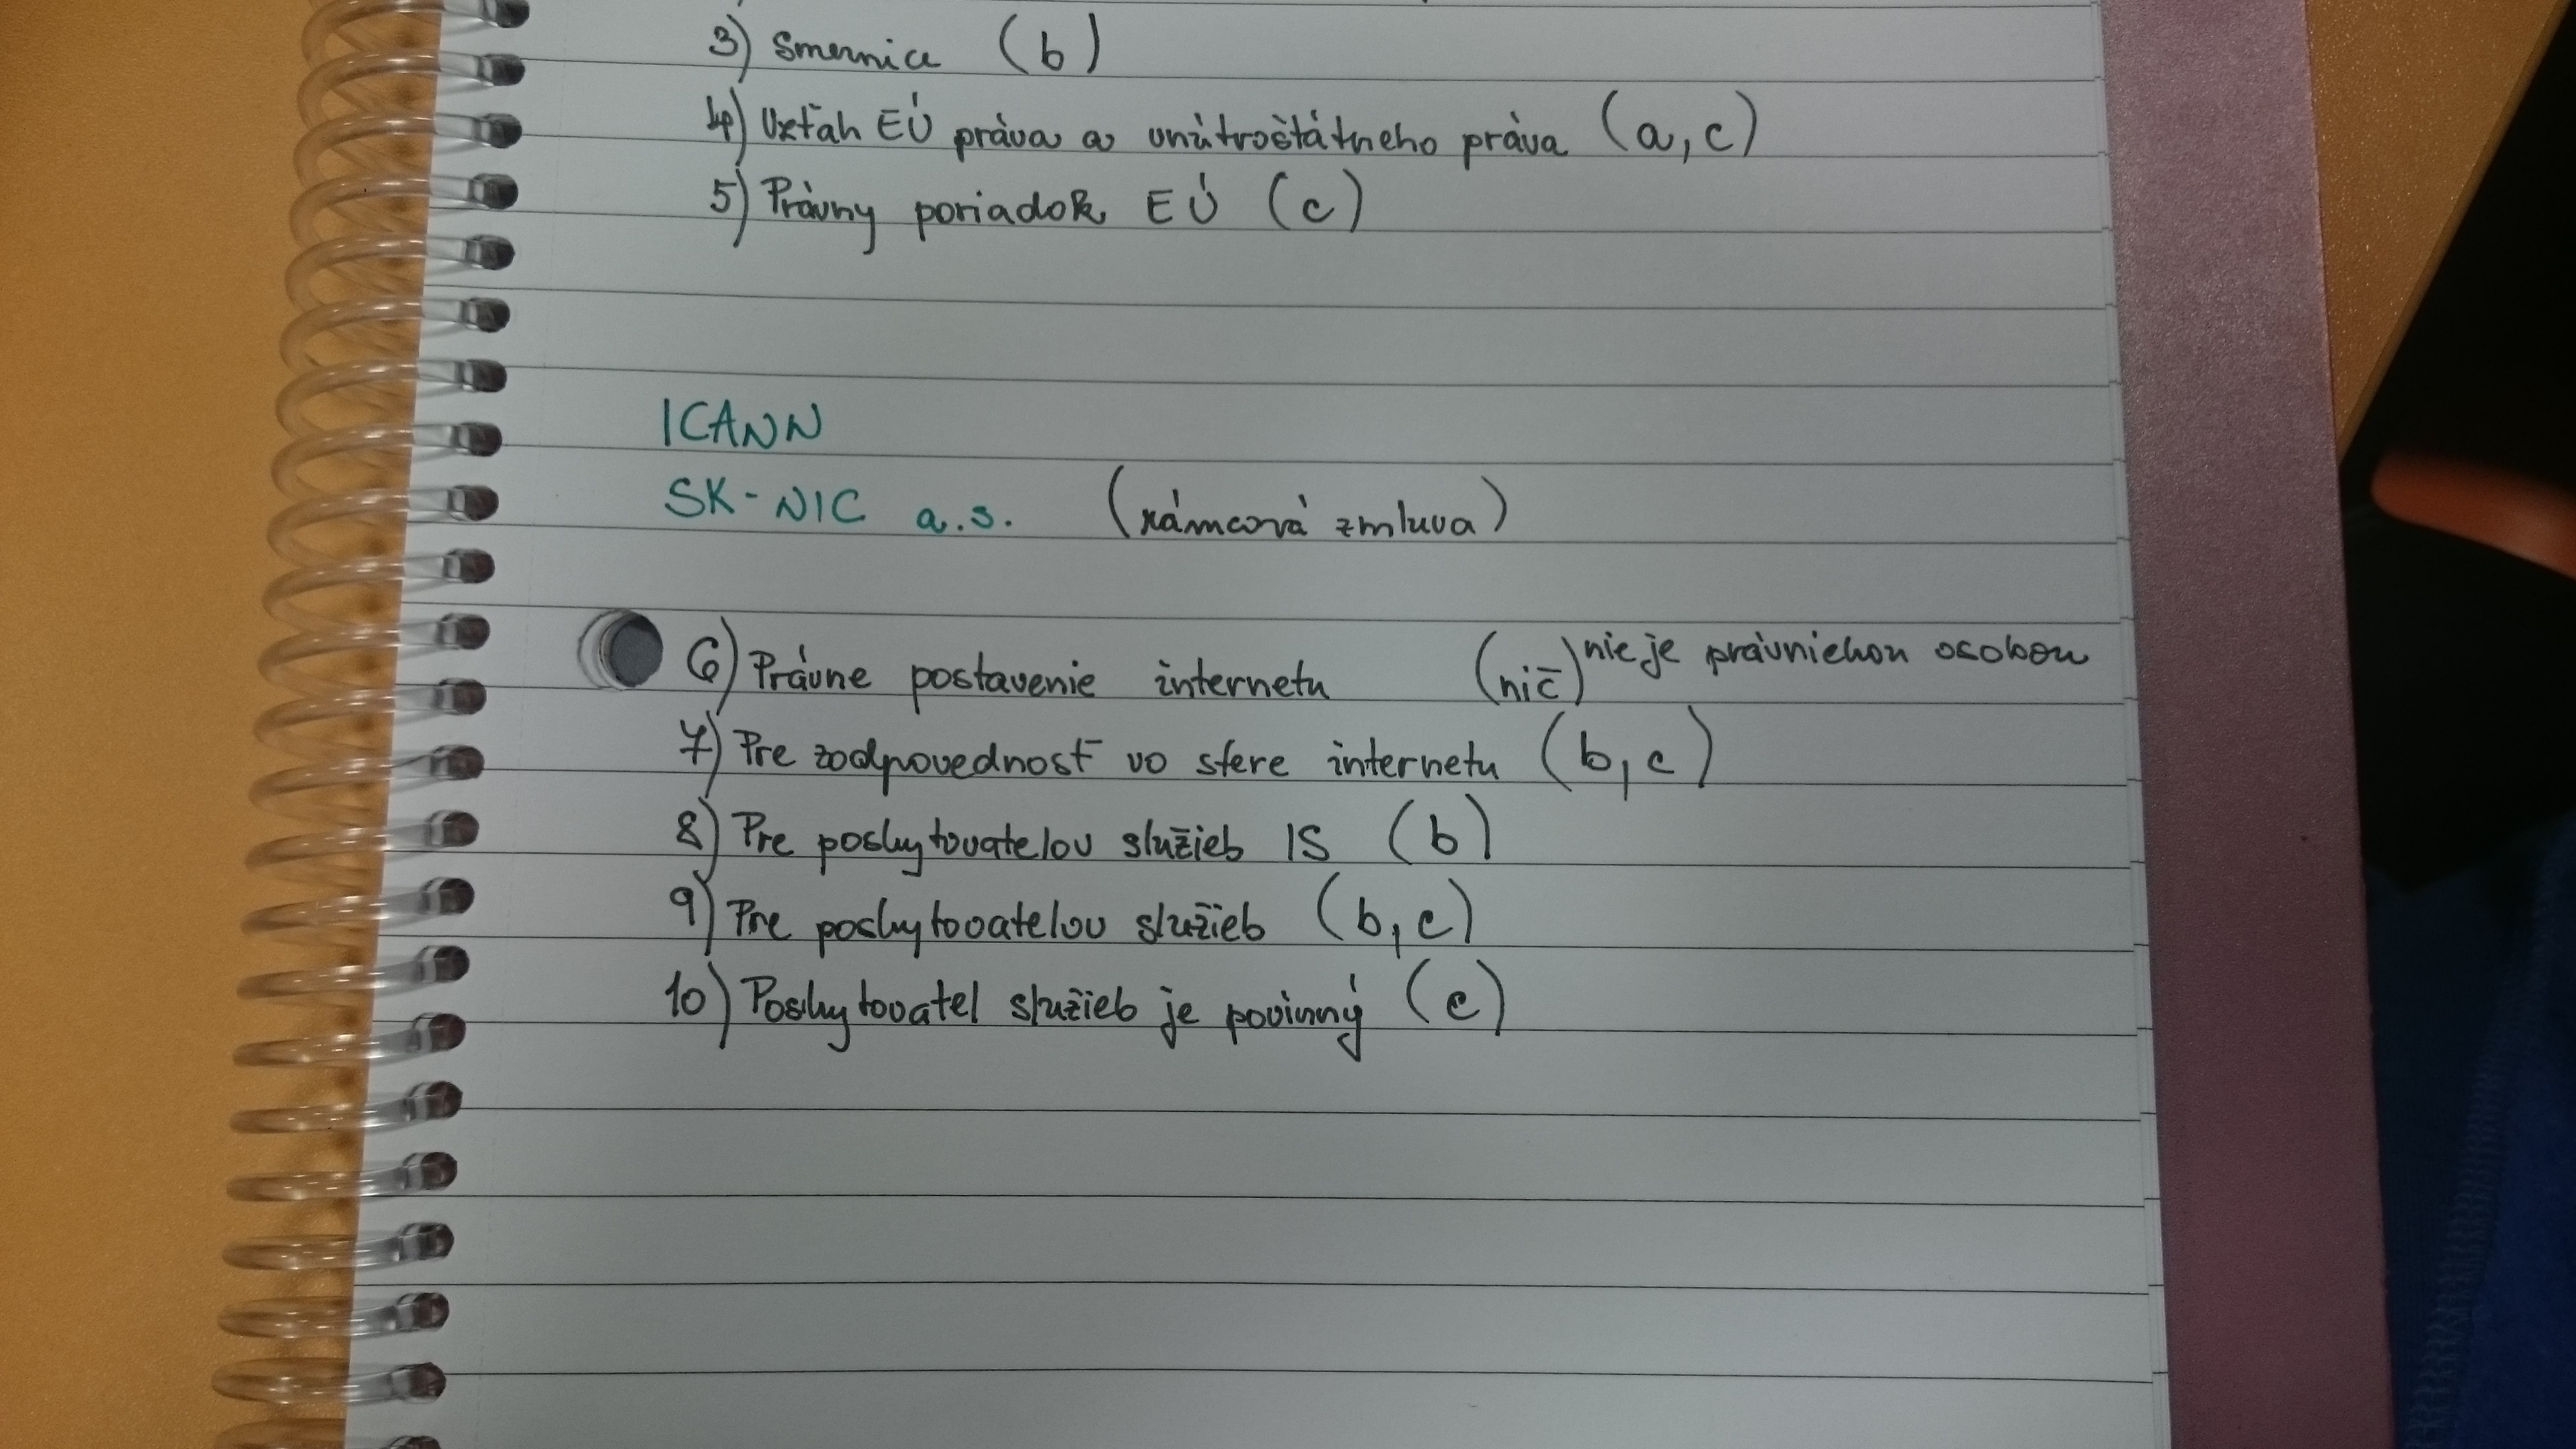 3) Smernice (b)
4) Vzťah EÚ práva a vnútroštátneho práva (a, c)
5) Právny poriadok EÚ (c)
ICANN
SK-NIC a.s. (rámcová zmluva)
6) Právne postavenie internetu (nič) nie je právnickou osobou
7) Pre zodpovednosť vo sfere internetu (b, c)
8) Pre poskytovatelov služieb IS (b)
9) Pre poskytovatelov služieb (b, c)
10) Poskytovatel služieb je povinný (c)